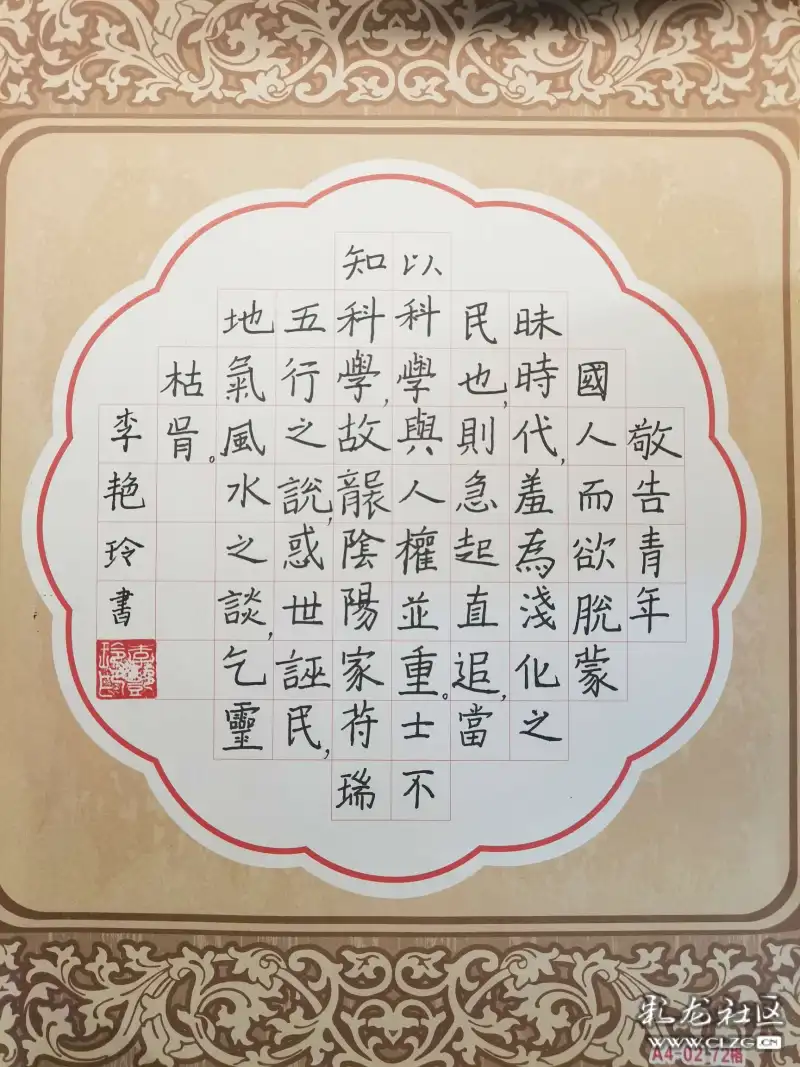 敬告青年
國人而欲脫蒙
昧時代,羞為淺化之
民也,則急起直追,當
以科學與人權並重。士不
知科學,故襲陰陽家符瑞
五行之說,惑世誣民,
地氣風水之談,乞靈
枯骨。
李艳玲書
乳龙社区
WWW.CLZG.CN
A4-02-72格